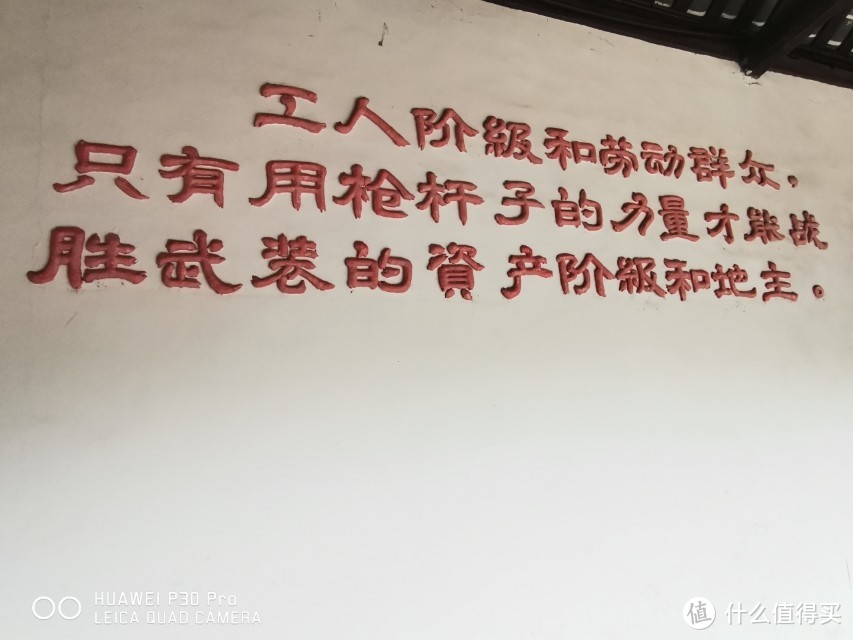 工人阶級和劳动群众，
只有用枪杆子的力量才能战
胜武装的資产阶級和地主。
HUAWEI P30 Pro
LEICA QUAD CAMERA
值 什么值得买